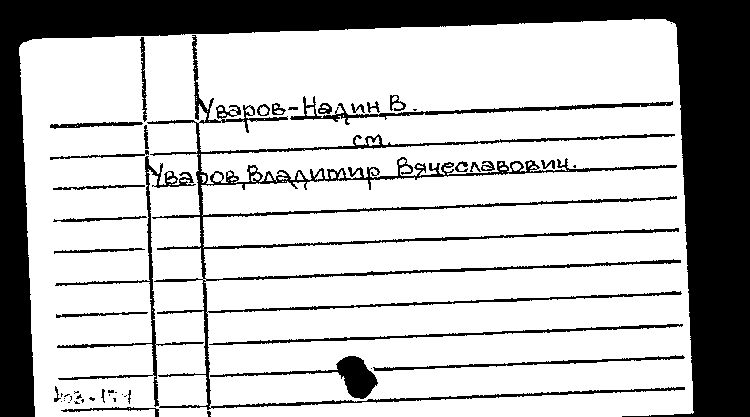 Уваров-Надин, В.
см.
Уваров, Владимир Вячеславович.